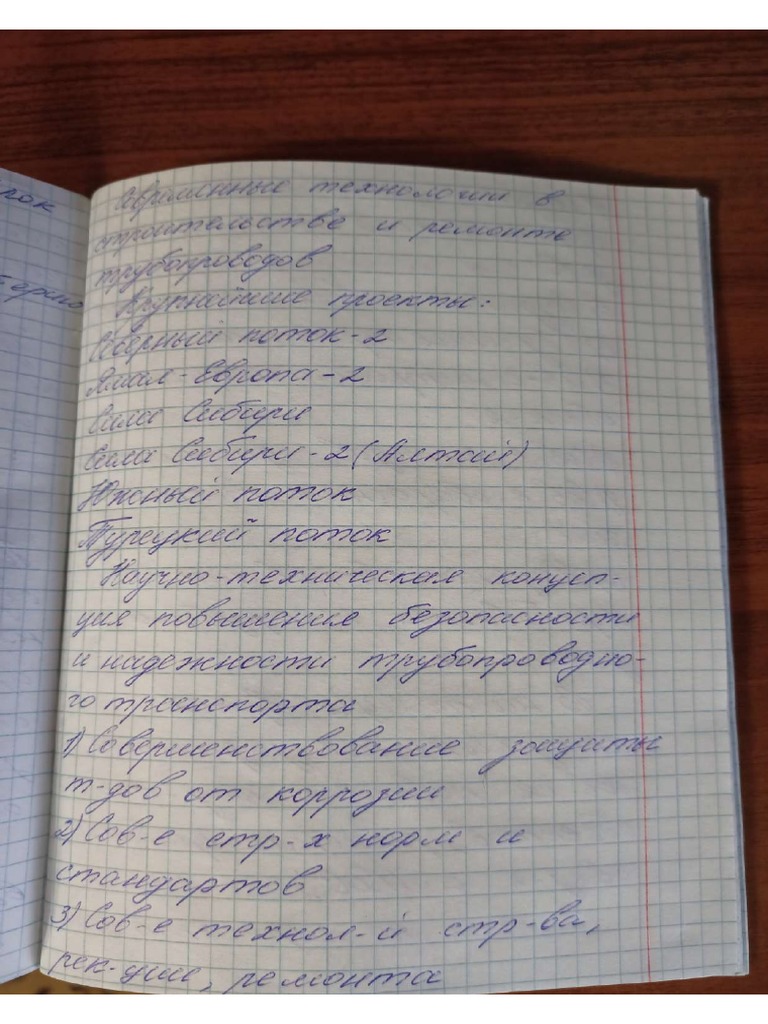 рок
Современные технологии в
строительстве и ремонте
трубопроводов
Крупнейшие проекты:
Северный поток-2
Ямал-Европа-2
Сила Сибири
Сила Сибири-2 (Алтай)
Южный поток
Турецкий поток
Научно-техническая концеп-
ция повышения безопасности
и надежности трубопроводно-
го транспорта
1) Совершенствование защиты
т-дов от коррозии
2) Сов-е стр-х норм и
стандартов
3) Сов-е технол-й стр-ва,
рек-ции, ремонта